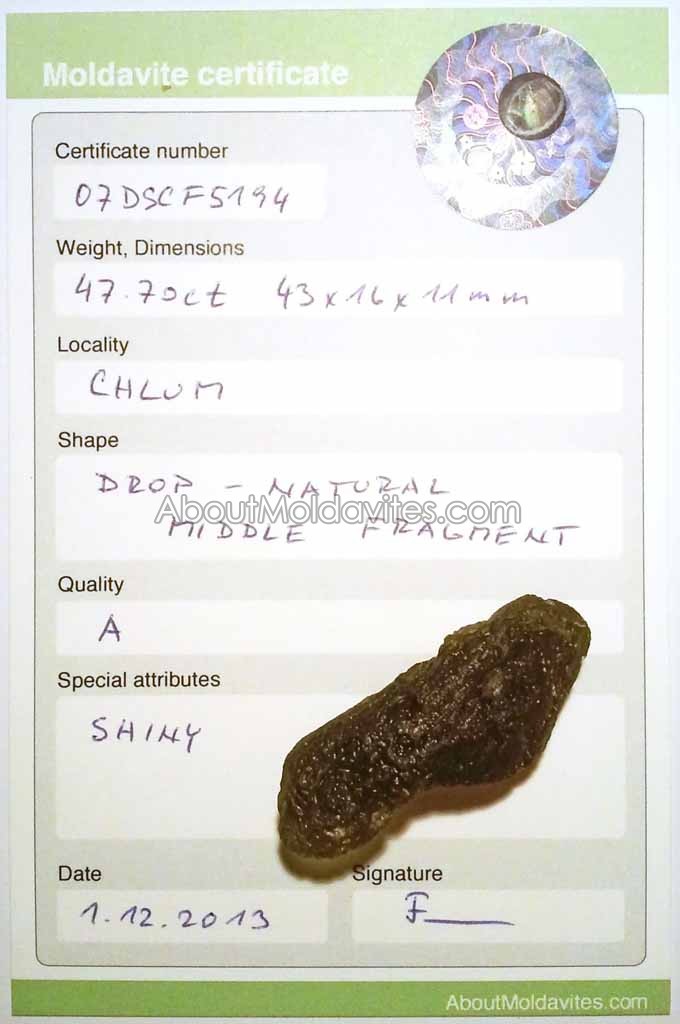 Moldavite certificate
Certificate number
07DSCF5194
Weight, Dimensions
47.70ct 43x16x11mm
Locality
CHLUM
Shape
DROP - NATURAL
AboutMoldavites.com
MIDDLE FRAGMENT
Quality
A
Special attributes
SHINY
Date
Signature
1.12.2013
F
AboutMoldavites.com